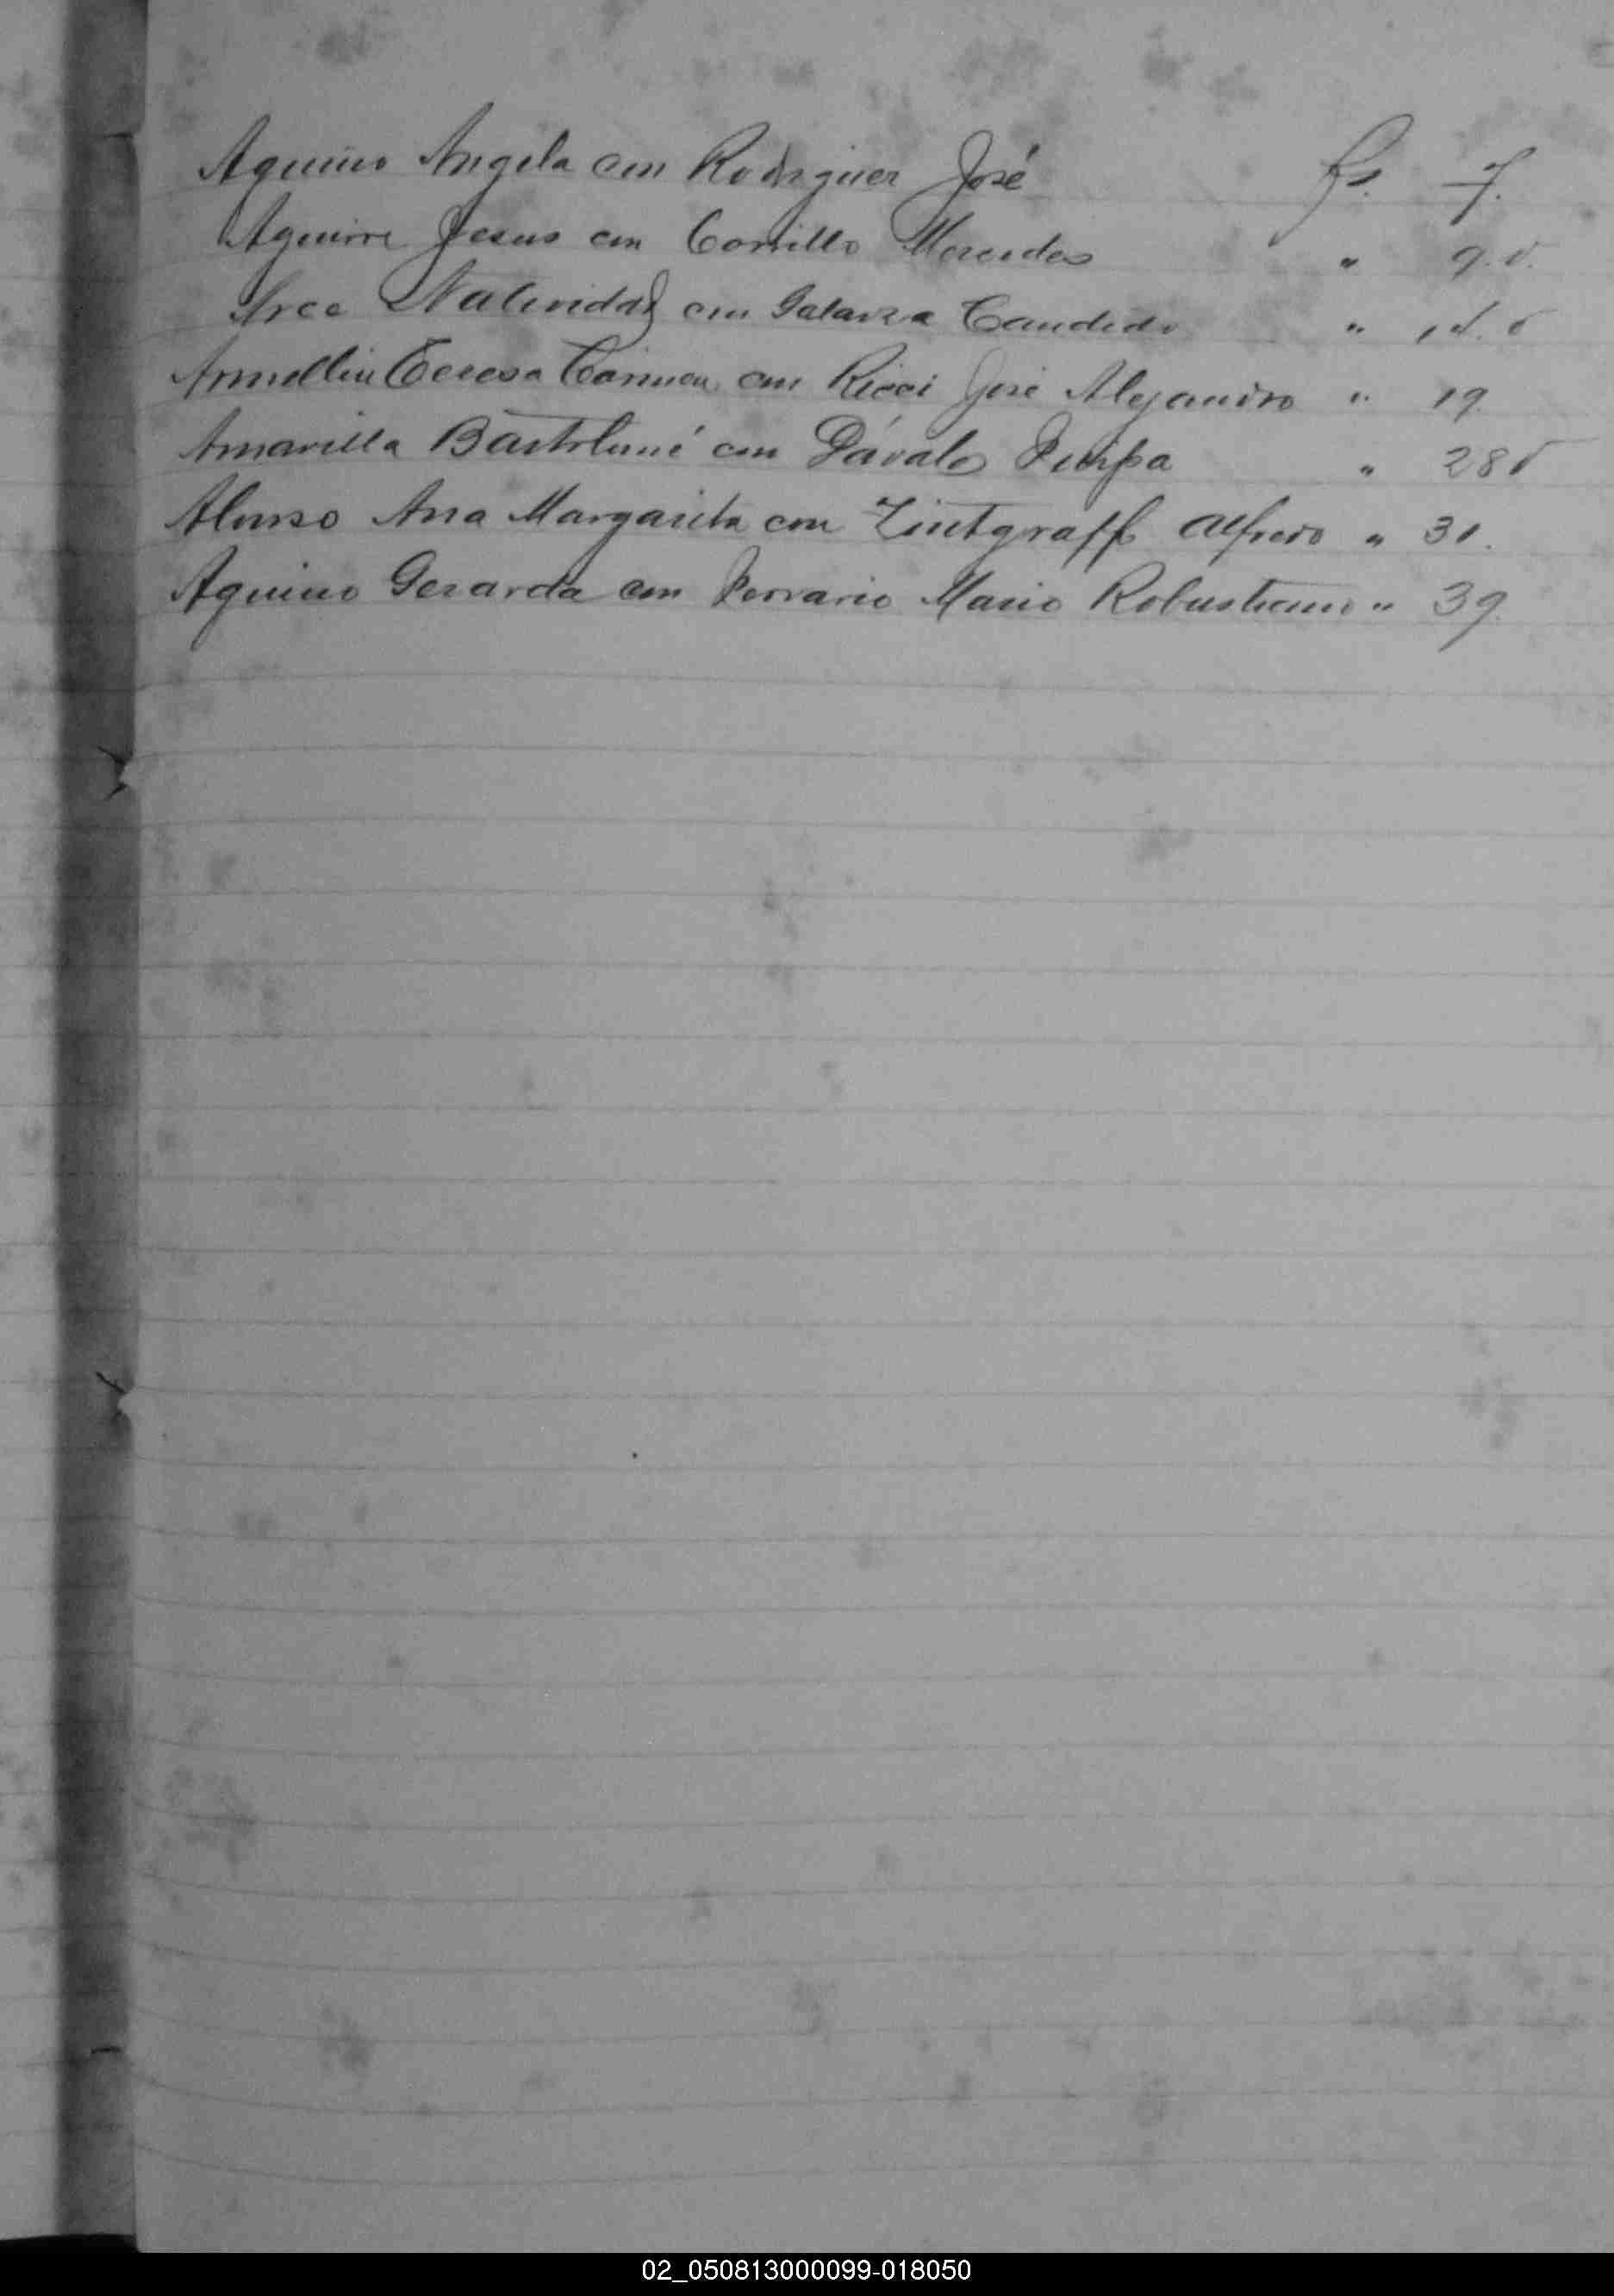 Aquino Angela con Rodriguez José fs. 7.
Aguirre Jesus con Carrillo Mercedes " 9.v.
Arce Natividad con Galarza Candido " v
Armellin Teresa Carmen con Ricci José Alejandro " 19.
Amarilla Bartolomé con Dávalo " 28v
Alonso Ana Margarita con Zintgraff Alfredo " 31.
Aquino Gerarda con Ferrario Mario Robustiano " 39.
02_050813000099-018050